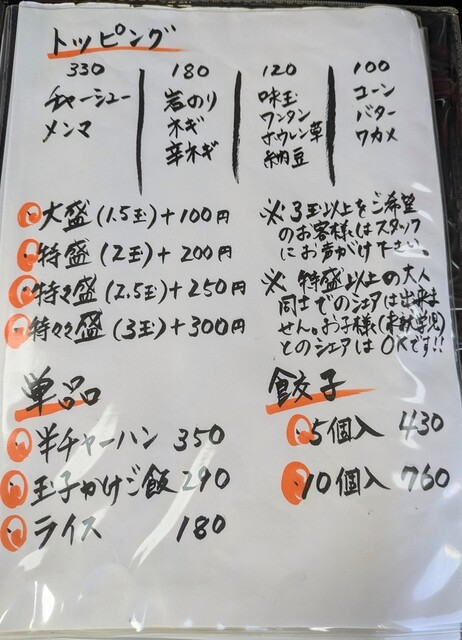 トッピング
330
チャーシュー
メンマ
180
岩のり
ネギ
辛ネギ
120
味玉
ワンタン
ホウレン草
納豆
100
コーン
バター
ワカメ
・大盛(1.5玉)+100円
・特盛(2玉)+200円
・特々盛(2.5玉)+250円
・特々々盛(3玉)+300円
※3玉以上をご希望
のお客様はスタッフ
にお声がけ下さい。
※特盛以上の大人
同士でのシェアは出来ま
せん。お子様(未就学児)
とのシェアはOKです!!
単品
・半チャーハン 350
・玉子かけご飯 290
・ライス 180
餃子
・5個入 430
・10個入 760